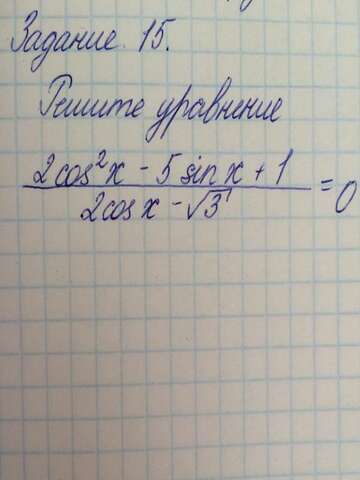 Задание 15.
Решите уравнение
2cos²x - 5 sin x + 1
2cos x - √3
= 0